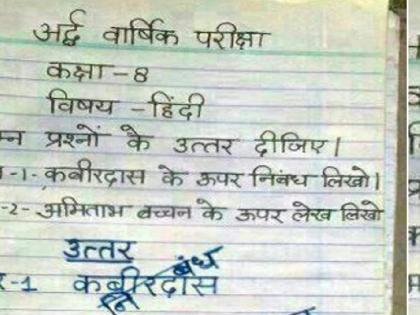 अर्द्ध वार्षिक परीक्षा
कक्षा - 8
विषय - हिंदी
प्रश्नों के उत्तर दीजिए।
-1- कबीरदास के ऊपर निबंध लिखो।
-2- अमिताभ बच्चन के ऊपर लेख लिखो
उत्तर
-1 कबीरदास
बंध